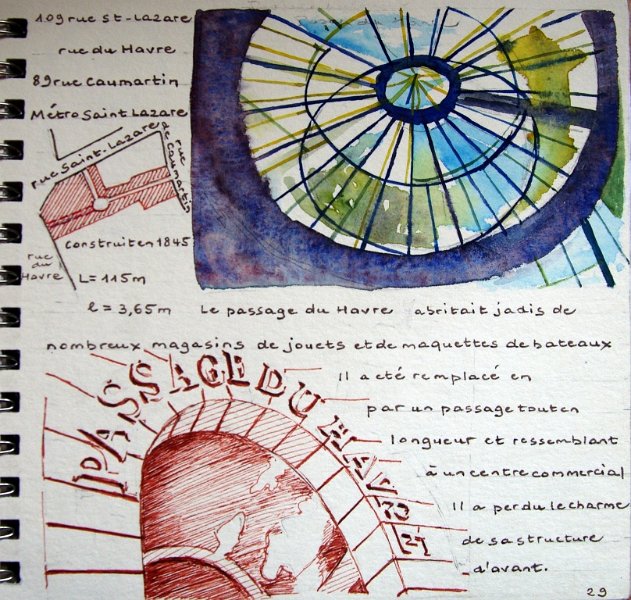 109 rue St-Lazare
rue du Havre
89 rue Caumartin
Métro Saint Lazare
rue Saint-Lazare
rue de Caumartin
construit en 1845
rue du Havre
L = 115 m
l = 3,65 m
Le passage du Havre abritait jadis de
nombreux magasins de jouets et de maquettes de bateaux
PASSAGE DU HAVRE
Il a été remplacé en
par un passage tout en
longueur et ressemblant
à un centre commercial
Il a perdu le charme
de sa structure
d'avant.
29